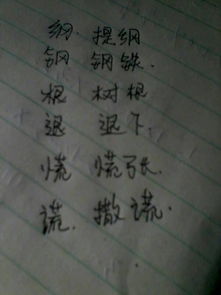 纲. 提纲
钢 钢铁.
根 树根
退 退下.
慌 慌张.
谎. 撒谎.